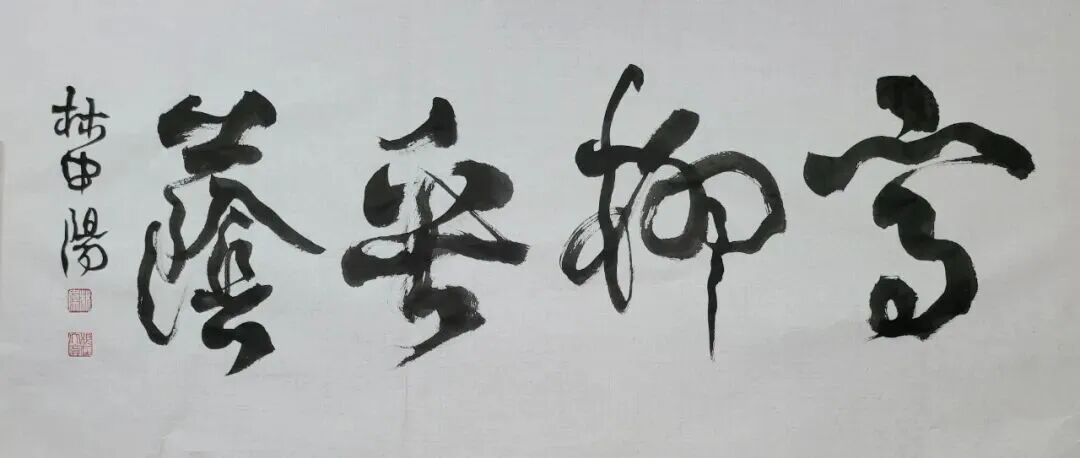 高柳垂蔭
林申陽